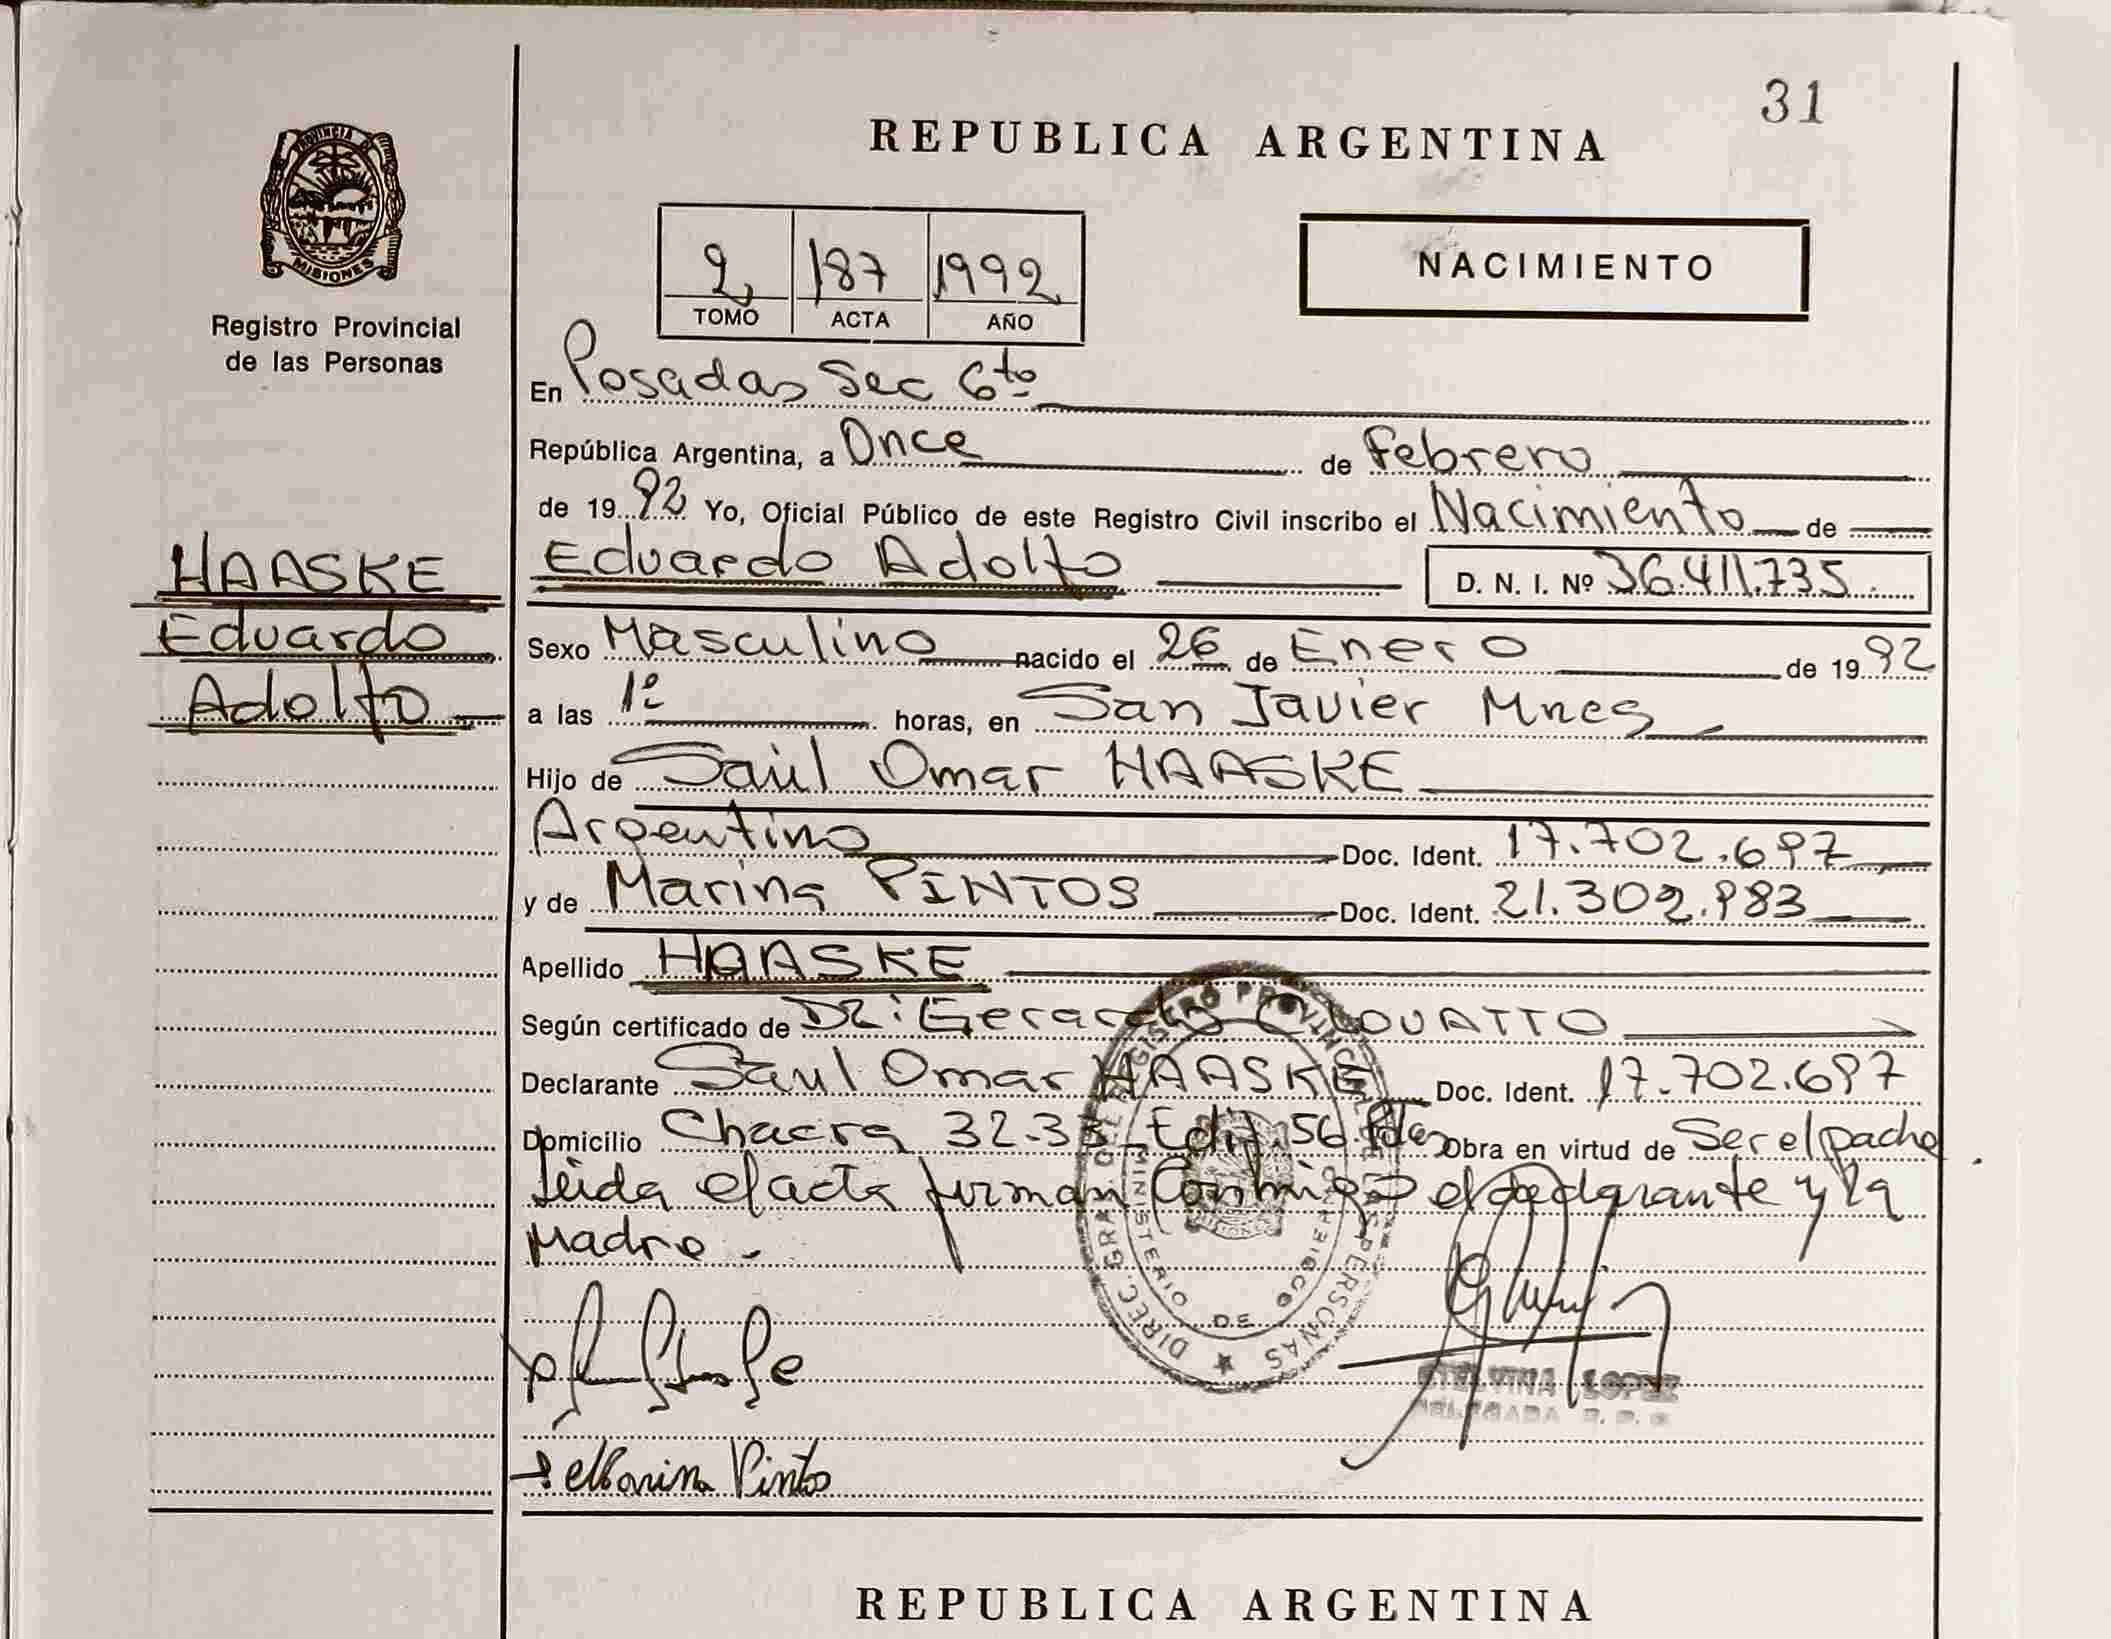 31
REPUBLICA ARGENTINA
PROVINCIA DE
MISIONES
Registro Provincial
de las Personas
2 187 1992
TOMO ACTA AÑO
NACIMIENTO
En Posadas Sec 6to
República Argentina, a Once de Febrero
de 1992 Yo, Oficial Público de este Registro Civil inscribo el Nacimiento de
HAASKE
Eduardo
Adolfo
Eduardo Adolfo D. N. I. Nº 36.411.735
Sexo Masculino nacido el 26 de Enero de 1992
a las 1º horas, en San Javier Mnes
Hijo de Saúl Omar HAASKE
Argentino Doc. Ident. 17.702.697
y de Marina PINTOS Doc. Ident. 21.302.983
Apellido HAASKE
Según certificado de Dr: Gerardo LOVATTO
Declarante Saul Omar HAASKE Doc. Ident. 17.702.697
Domicilio Chacra 32-33 Edif. 56 Pdas Obra en virtud de Ser el padre
Leida el acta firman Conmigo el declarante y la
Madre.
DIREC. GRAL. DEL REGISTRO PROVINCIAL DE LAS PERSONAS
MINISTERIO DE GOBIERNO
ETELVINA LOPEZ
DELEGADA R. P. P.
Marina Pinto
REPUBLICA ARGENTINA